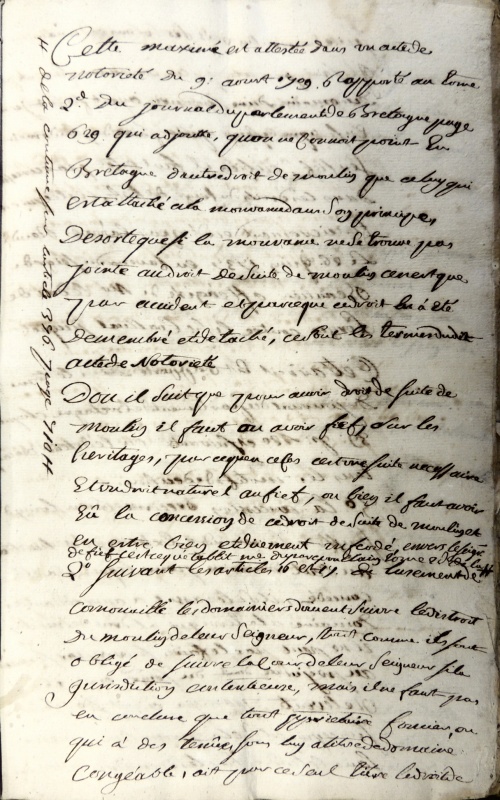 Cette maxime est attestée dans un acte de
notorieté du 9e aoust 1709. Rapporté au tome
2d. du journal du parlement de Bretagne page
629 qui adjoutte, qu'on ne connoit point En
Bretagne d'autre droit de moulin que celuy qui
est attaché a la mouvance dans son principe,
Desorteque si la mouvance ne se trouve pas
jointe au droit de suite de moulin ce n'est que
par accident et parceque ce droit en a été
demembré et detaché, ce sont les termes dudit
acte de Notorieté
Dou il suit que pour avoir droit de suite de
moulin il faut ou avoir fief sur les
heritages, parceque c'est une suite necessaire
Et un droit naturel au fief, ou bien il faut avoir
Eu la concession de ce droit de suite de moulin et
en estre bien et duement infeodé, envers le seigr
de fief c'est ce qu'etablit
2o Suivant les articles 16 et 17 de l'usement de
cornouaille les domaniers doivent suivre le distroit
du moulin de leur Seigneur, tout comme ils sont
obligé de suivre la Cour de leur Seigneur s'il a
Jurisdiction contentieuse, mais il ne faut pas
en conclure que tout proprietaire foncier, ou
qui a des tenües sous luy a titre de domaine
Congéable, ait par ce seul titre le droit de
# de la coutume sur article 386 page 710 #